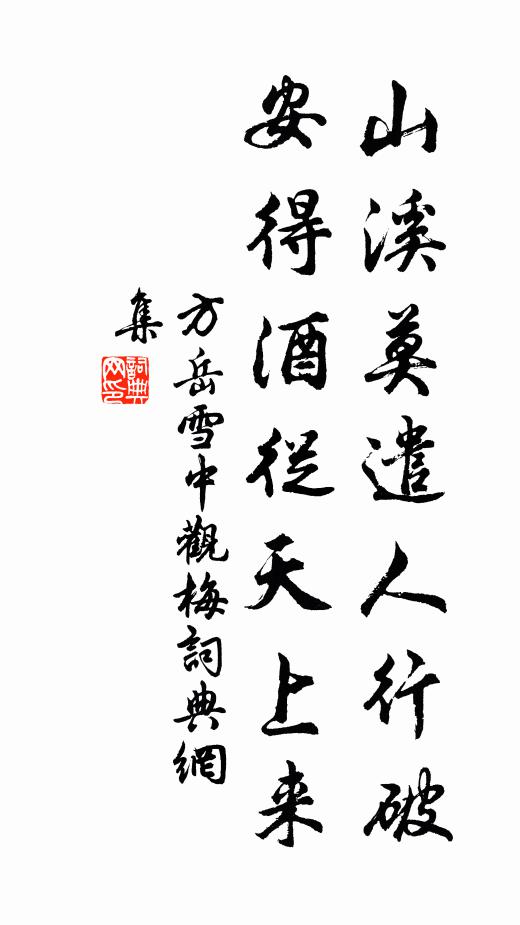 山溪莫遣人行破
安得酒從天上来
方岳雪中觀梅詞典網
集
詞典网印